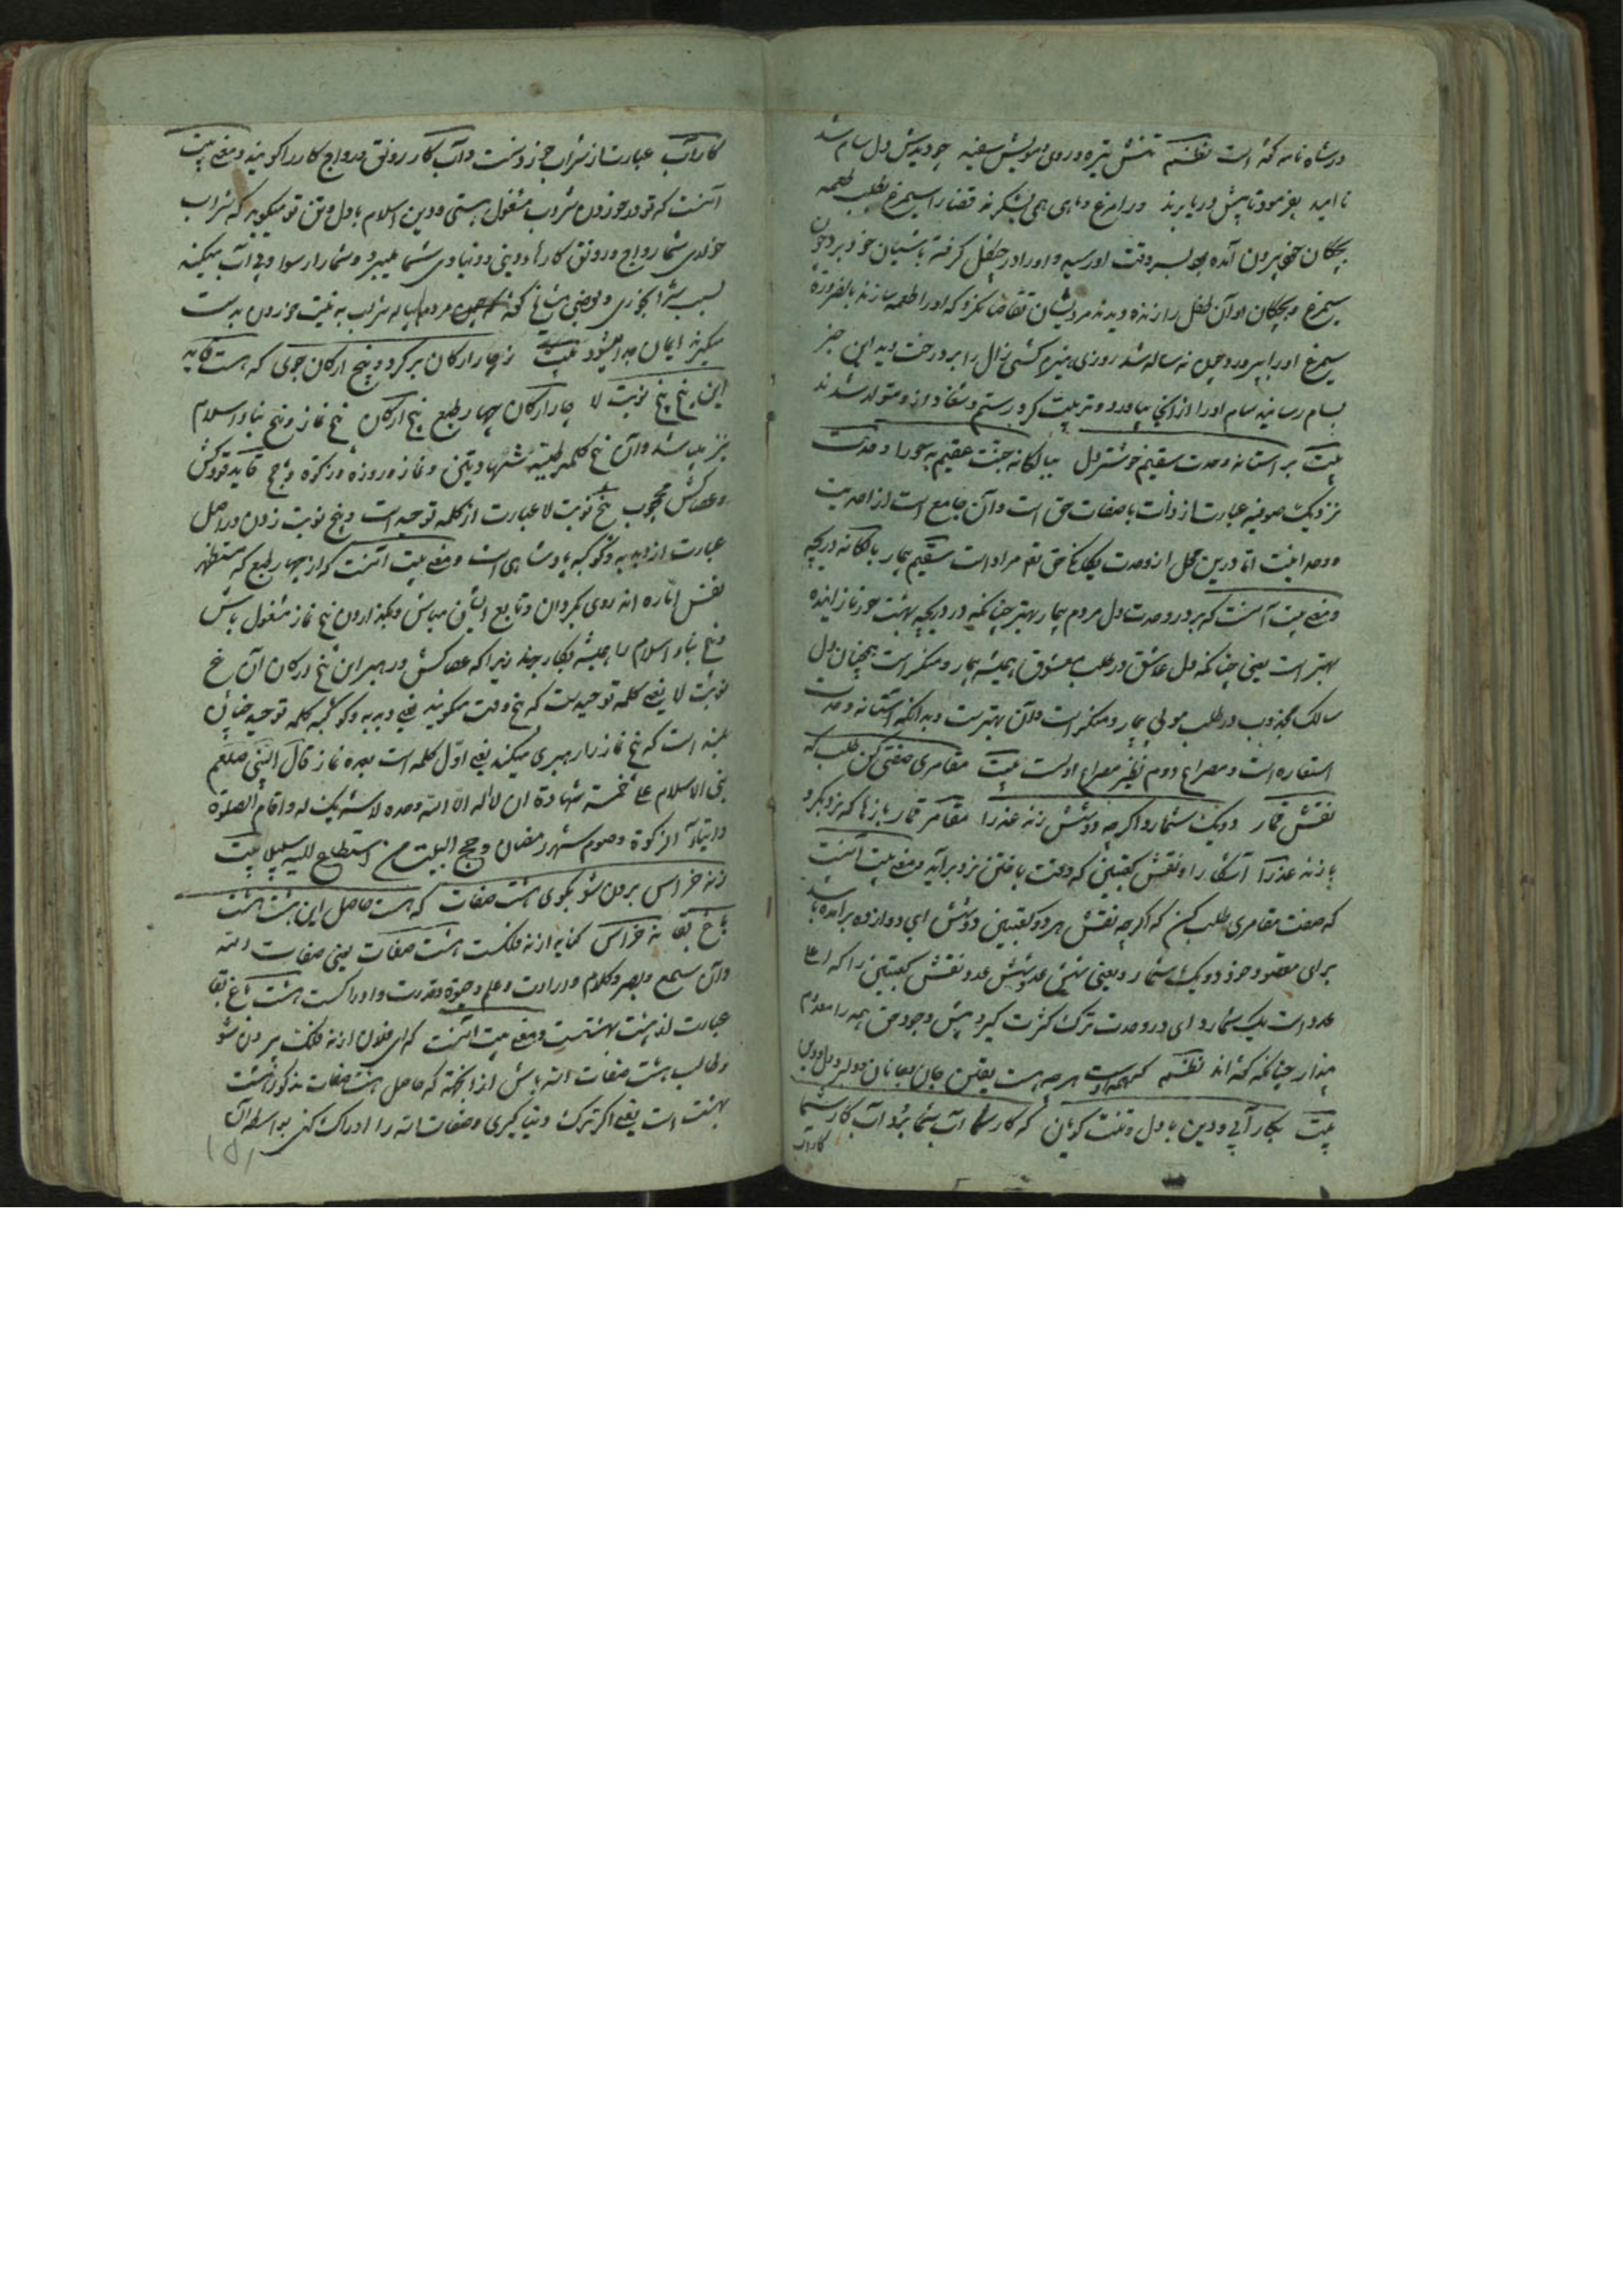 در شاه نامه گفته است نظم تنش تیره و روی و مویش سفید چو دیدش دل سام شد
نا امید بفرمود تا پیش دریا برند در امرغ و ماهی همی بشکرند قضا را سیمرغ بطلب طعمه
بچکان خود بیرون آمده بود بسر وقت او رسید و او را در چنگل گرفته باشیان خود برد چون
سیمرغ و بچکان او آن طفل را زنده دیدند مردیشان تقاضا نکرد که او را طعمه سازند بالضرورة
سیمرغ او را بپرورد و چون نه ساله شد روزی هیزم کشی زال را بر درخت دید این خبر
بسام رسانید سام او را از آنجا بیاورد و تربیت کرد رستم و شغاد از و متولد شدند
بیت بر استانه وحدت سقیم خوشتر دل ببالکانه جنت عقیم به حورا وحدت
نزدیک صوفیه عبارت از ذات با صفات حق است و آن جامع است از احدیت
و وحدانیت اما درین محل از وحدت یکانکی حق تع مراد است سقیم بیمار بالکانه دریچه
و معنی بیت آنست که بر در وحدت دل مردم بیمار بهتر چنانکه در دریچه بهشت حور نازاینده
بهتر است یعنی چنانکه دل عاشق در طلب معشوق همیشه بیمار و منکسر است همچنان دل
سالک مجذوب در طلب مولی بیمار و منکسر است و آن بهترست و بدانکه استانه وحدت
استعاره است و مصراع دوم نظیر مصراع اولست بیت مقامری صفتی کن طلب که
نقش قمار دو یک شمارد اکرچه دو شش زند عذرا مقامر قمار باز ما که نزد بکرد
بازند عذرا آشکارا و نقش کعبتین که وقت باختن نرد برآید و معنی بیت آنست
که صفت مقامری طلب کن که اکرچه نقش هر دو کعبتین دو شش ای دوازده برآمده باشد
برای مقصود خود دو یک شمارد یعنی شش عدد نقش کعبتین را که اعلی
عدد است یک شمارد ای در وحدت ترک کثرت کیرد پیش وجود حق همه را معدوم
پندار چنانکه کفته اند نظم که همه اوست هر چه هست یقین جان و جانان و دلبر و دل و دین
بیت بکار آبی و دین با دل و تنت کویان که کار آب شما برد آب کار شما
کار آب
کار آب عبارت از شراب خوردنست و آب کار رونق و رواج کار را کویند و معنی بیت
آنست که تو در خوردن شراب مشغول هستی و دین اسلام با دل و تن تو میکوید که شراب
خوری شما رواج و رونق کارهاء دینی و دنیاوی شما میبرد و شما را رسوا و بی آب میکند
میکیرند ایمان جدا میشود بیت ز چار ارکان بر کرد و پنج ارکان جوی که هست قاید
این پنج پنج نوبت لا چار ارکان چهار طبع پنج ارکان پنج نماز و پنج بناء اسلام
نیز میباشد و آن پنج کلمه طیبه شهادتین و نماز و روزه و زکوة و حج قاید قودکش
و عصاکش محجوب پنج نوبت لا عبارت از کلمه توحید است و پنج نوبت زدن در اصل
عبارت از دبدبه و کوکبه پادشاهی است و معنی بیت آنست که از چهار طبع که مستظهر
نفس اماره اند روی بکردان و تابع ایشان مباش و بکذاردن پنج نماز مشغول باش
و پنج بناء اسلام را همیشه بکار بند زیرا که عصاکش و رهبر این پنج ارکان آن پنج
نوبت لا یعنی کلمه توحیدست که پنج وقت میکویند یعنی دبدبه و کوکبه کلمه توحید چنان
بلند است که پنج نماز را رهبری میکند یعنی اول کلمه است بعده نماز قال النبی صلعم
بنی الاسلام علی خمسة شهادة ان لا اله الا الله وحده لا شریک له و اقام الصلوة
و ایتاء الزکوة و صوم شهر رمضان و حج البیت من استطاع الیه سبیلا بیت
ز نه خراس برون شو بکوی هشت صفات که هست حاصل این هشت هشت
باغ بقا نه خراس کنایه از نه فلکست هشت صفات یعنی صفات الله
و آن سمع و بصر و کلام و ارادت و علم و حیوة و قدرت و ادراکست هشت باغ بقا
عبارت از هشت بهشتست و معنی بیت آنست که ای فلان از نه فلک بیرون شو
و طالب هشت صفات الله باش از آنکه که حاصل هشت صفات مذکور هشت
بهشت است یعنی اکر ترک دنیا کیری و صفات الله را ادراک کنی بواسطه آن